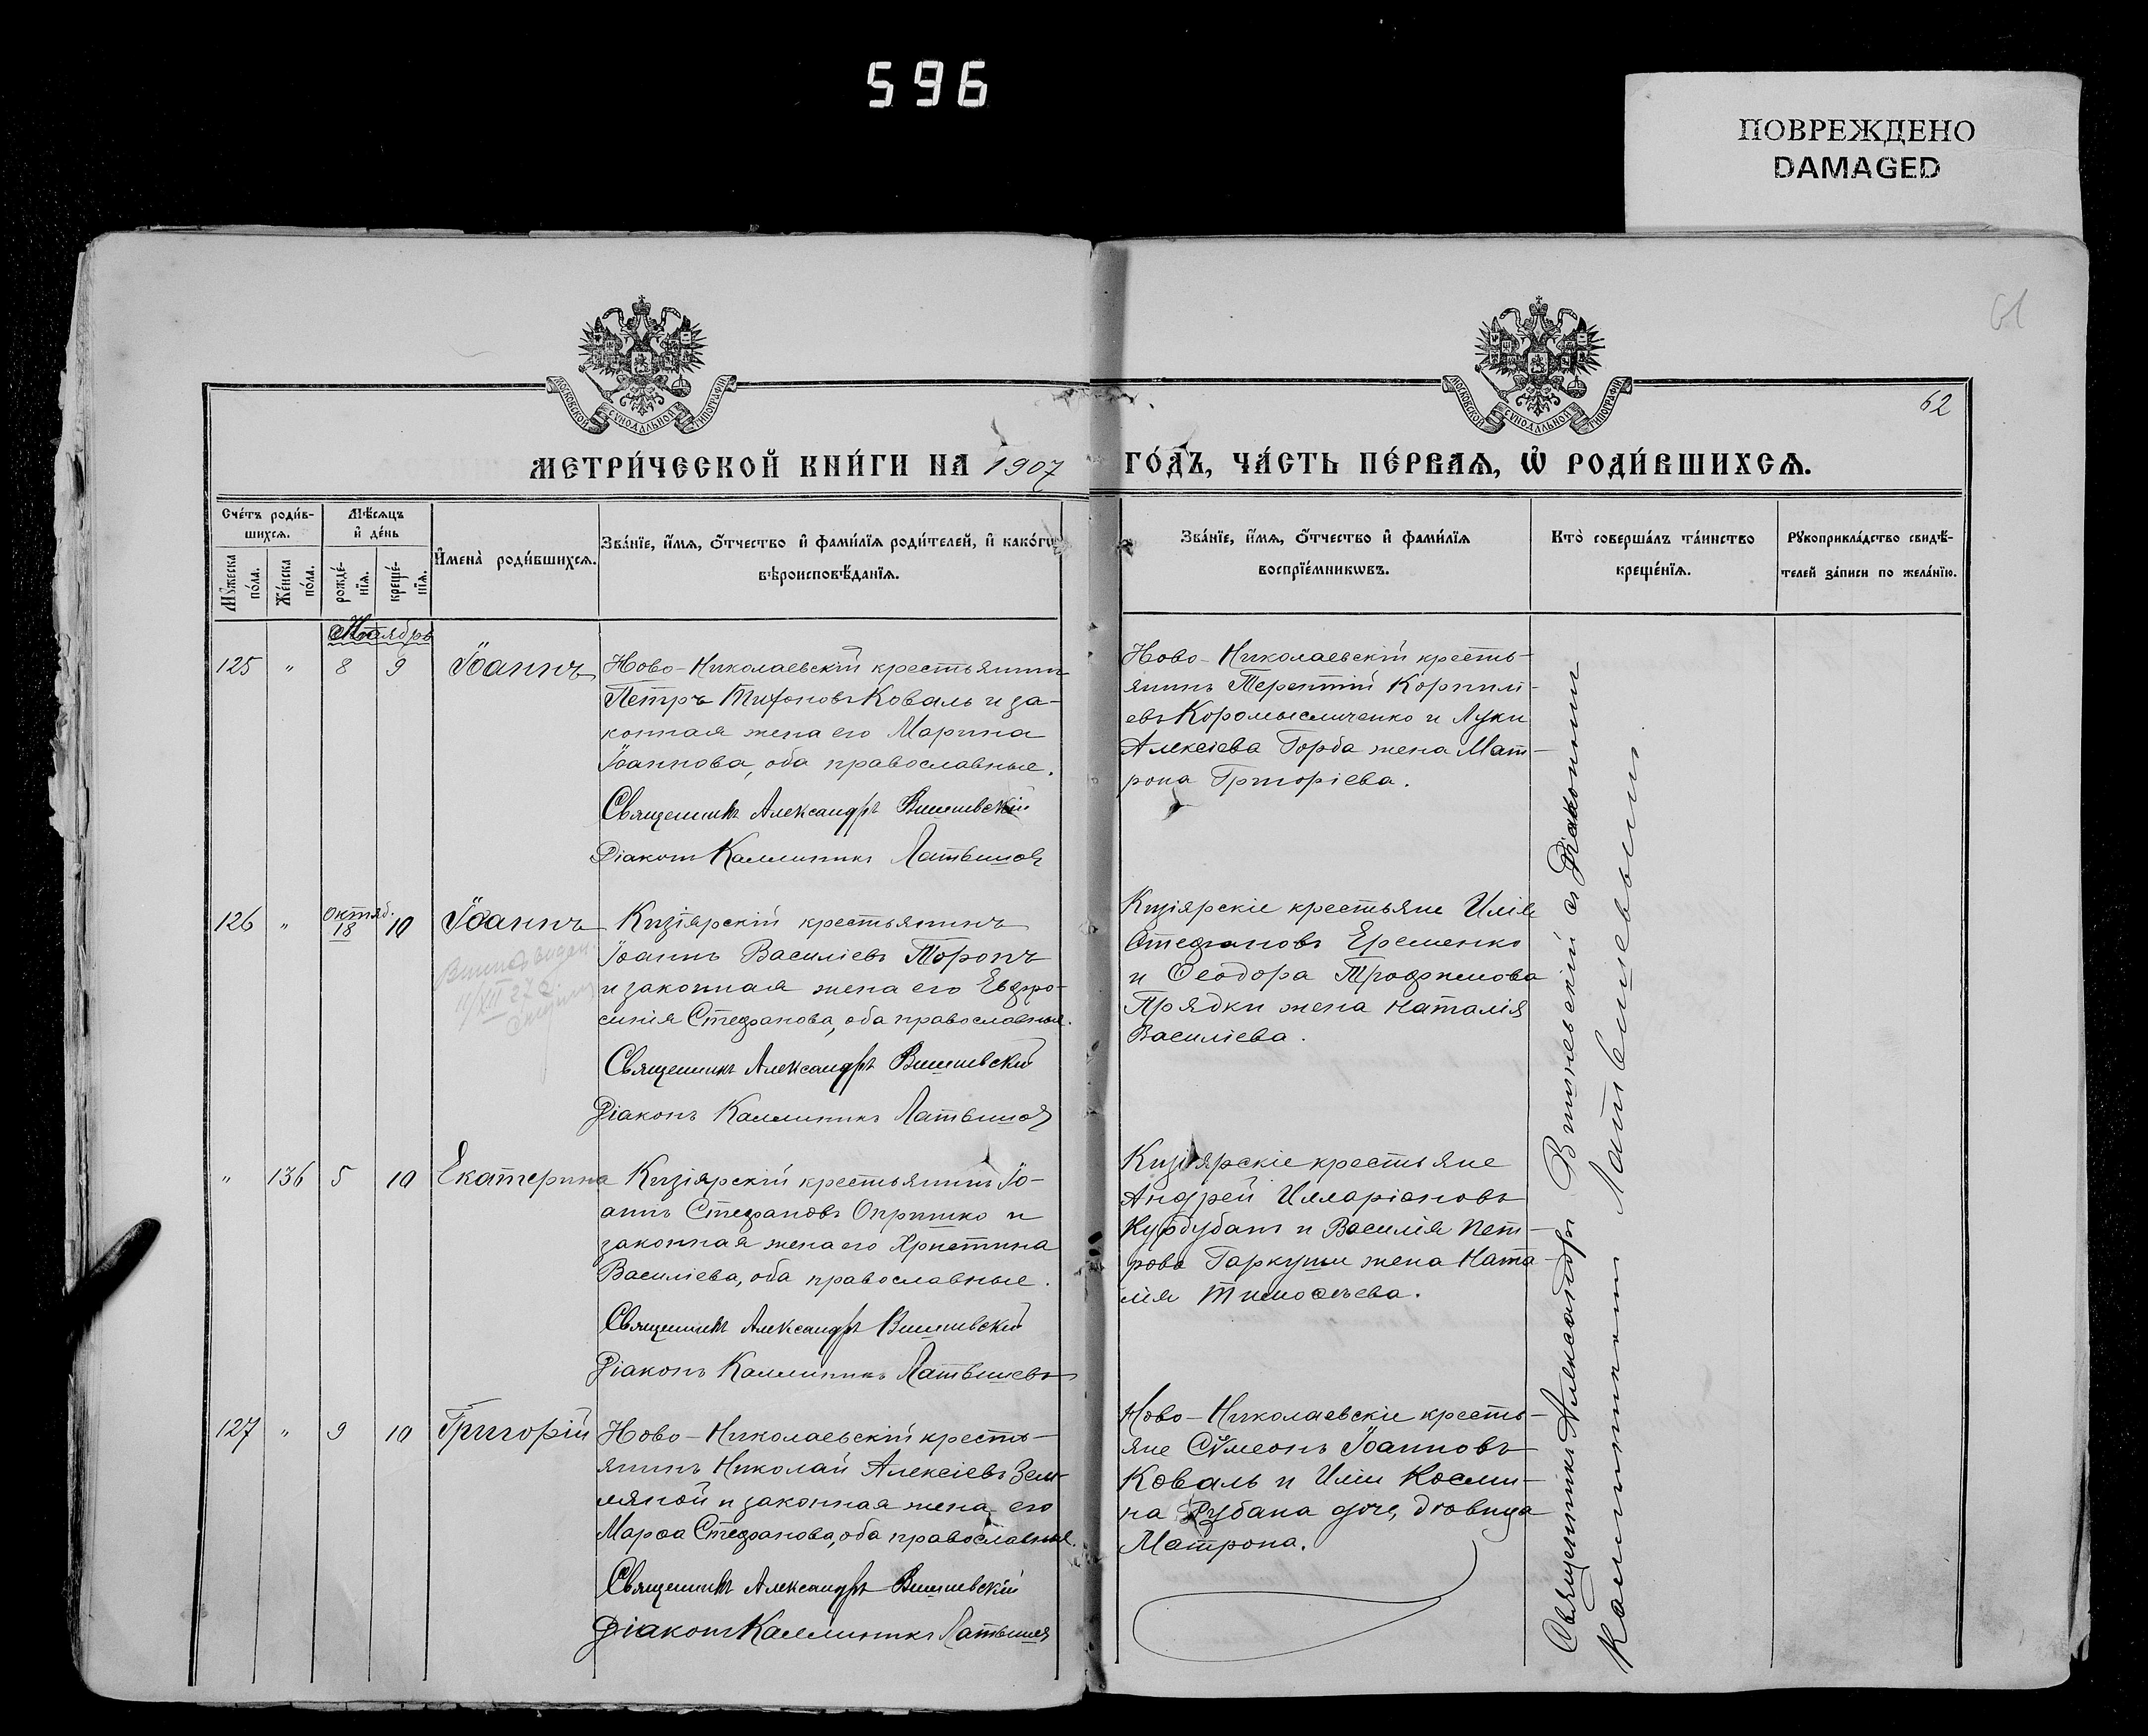 596
ПОВРЕЖДЕНО
DAMAGED
61
62
МОСКОВСКОЙ СУНОДАЛЬНОЙ ТИПОГРАФІИ
МОСКОВСКОЙ СУНОДАЛЬНОЙ ТИПОГРАФІИ
МЕТРИ́ЧЕСКОЙ КНИ́ГИ НА 1907 ГО́ДЪ, ЧА́СТЬ ПЕ́РВАЯ, Ѡ҆ РОДИ́ВШИХСЯ.
Сче́тъ роди́в-
шихсѧ.
Мѣ́сѧцъ
и҆ де́нь
Мꙋ́жеска
по́ла.
Же́нска
по́ла.
рожде́-
нїѧ.
креще́-
нїѧ.
И҆мена̀ роди́вшихсѧ.
Зва́нїе, и҆́мѧ, ѻ҆́тчество и҆ фами́лїѧ роди́телей, и҆ како́гѡ
вѣроисповѣ́данїѧ.
Зва́нїе, и҆́мѧ, ѻ҆́тчество и҆ фами́лїѧ
воспрїе́мникѡвъ.
Кто̀ соверша́лъ та́инство
креще́нїѧ.
Рꙋкоприкла́дство свидѣ́-
телей за́писи по жела́нїю.
Ноябрь
125 " 8 9 Іоаннъ
Ново-Николаевскій крестьянинъ
Петръ Тифоновъ Коваль и за-
конная жена его Марина
Іоаннова, оба православные.
Священникъ Александръ Вишневскій
Діаконъ Каллиникъ Латвишевъ
Ново-Николаевскій кресть-
янинъ Терентій Корнилі-
евъ Коромысличенко и Луки
Алексіева Горба жена Мат-
рона Григоріева.
126 " Октяб. 18 10 Іоаннъ
11/XII 27
Кизіярскій крестьянинъ
Іоаннъ Василіевъ Торопъ
и законная жена его Евфро-
синія Стефанова, оба православные.
Священникъ Александръ Вишневскій
Діаконъ Каллиникъ Латвишевъ
Кизіярскіе крестьяне Илія
Стефановъ Еременко
и Ѳеодора Трофимова
Прядки жена Наталія
Василіева.
" 136 5 10 Екатерина
Кизіярскій крестьянинъ Іо-
аннъ Стефановъ Опришко и
законная жена его Христина
Василіева, оба православные.
Священникъ Александръ Вишневскій
Діаконъ Каллиникъ Латвишевъ
Кизіярскіе крестьяне
Андрей Илларіоновъ
Курбубанъ и Василія Пет-
рова Гаркуши жена Ната-
лія Тимоѳеева.
127 " 9 10 Григорій
Ново-Николаевскій кресть-
янинъ Николай Алексіевъ Зем-
ляной и законная жена его
Марѳа Стефанова, оба православные.
Священникъ Александръ Вишневскій
Діаконъ Каллиникъ Латвишевъ
Ново-Николаевскіе кресть-
яне Сѵмеонъ Іоанновъ
Коваль и Иліи Косми-
на Рубана дочь, дѣвица
Матрона.
Священникъ Александръ Вишневскій съ Діакономъ
Каллиникомъ Латвишевымъ.